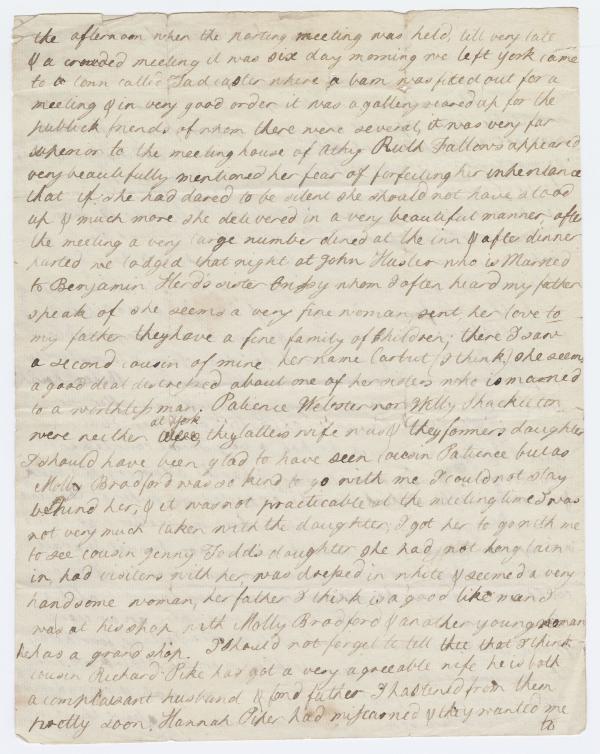 the afternoon when the parting meeting was held, till very late
& a crowded meeting it was six day morning we left York came
to a town called Tadcaster where a barn was fitted out for a
meeting & in very good order it was a gallery reared up for the
publick friends of whom there were several, it was very far
superior to the meeting house of Athy Ruth Fallows appeared
very beautifully mentioned her fear of forfeiting her inheritance
that if she had dared to be silent she should not have stood
up & much more she delivered in a very beautiful manner, after
the meeting a very large number dined at the inn & after dinner
parted we lodged that night at John Hustler who is Married
to Benjamin Herd's sister Crissy whom I often heard my father
speak of she seems a very fine woman sent her love to
my father they have a fine family of Children; there I saw
a second cousin of mine her name Carbut (I think) she seems
a good deal distressed about one of her sisters who is married
to a worthless man. Patience Webster nor Willy Shackleton
were neither at York, they latters wife was & they formers daughter
I should have been glad to have seen cousin Patience but as
Molly Bradford was so kind to go with me I could not stay
behind her, & it was not practicable at the meeting time I was
not very much taken with the daughter, I got her to go with me
to see cousin Jenny Todd's daughter she had not long lain
in, had visiters with her was dressed in white & seemed a very
handsome woman, her father I think is a good like man I
was at his shop with Molly Bradford & another young woman
he has a grand shop. I should not forget to tell thee that I think
cousin Richard Pike has got a very agreeable wife he is both
a complaisant husband & fond father I hastened from them
pretty soon. Hannah Piker had miscarried & they wanted me
to